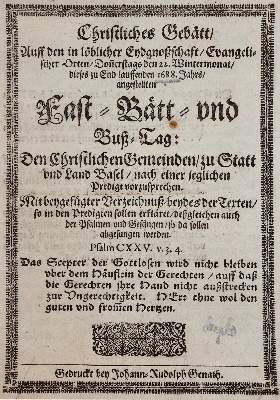 Christliches Gebätt/
Auff den in löblicher Eydgnoßschafft/ Evangeli-
scher Orten/ Donerstags den 22. Wintermonat/
dieses zu End lauffenden 1688. Jahrs/
angestellten
Fast- Bätt- vnd
Buß-Tag:
Den Christlichen Gemeinden/ zu Statt
vnd Land Basel/ nach einer jeglichen
Predigt vorzusprechen.
Mit beygefügter Verzeichnuß beydes der Texten/
so in den Predigten sollen erkläret/ deßgleichen auch
der Psalmen vnd Gesängen/ so da sollen
abgesungen werden.
Psalm CXXV. v. 3. 4.
Das Scepter der Gottlosen wird nicht bleiben
vber dem Häuflein der Gerechten/ auff daß
die Gerechten ihre Hand nicht außstrecken
zur Vngerechtigkeit. HErr thue wol den
guten vnd from̄en Hertzen.
Gedruckt bey Johann Rudolph Genath.